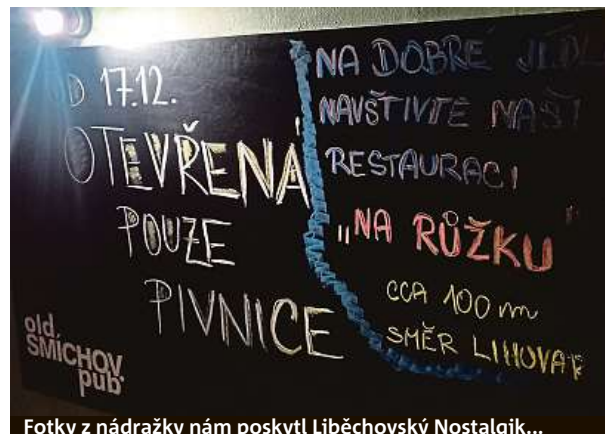 OD 17.12.
OTEVŘENÁ
POUZE
PIVNICE
NA DOBRÉ JÍDLO
NAVŠTIVTE NAŠI
RESTAURACI
„NA RŮŽKU"
CCA 100 m
SMĚR LIHOVAR
old.
SMÍCHOV.
pub.
Fotky z nádražky nám poskytl Liběchovský Nostalgik...